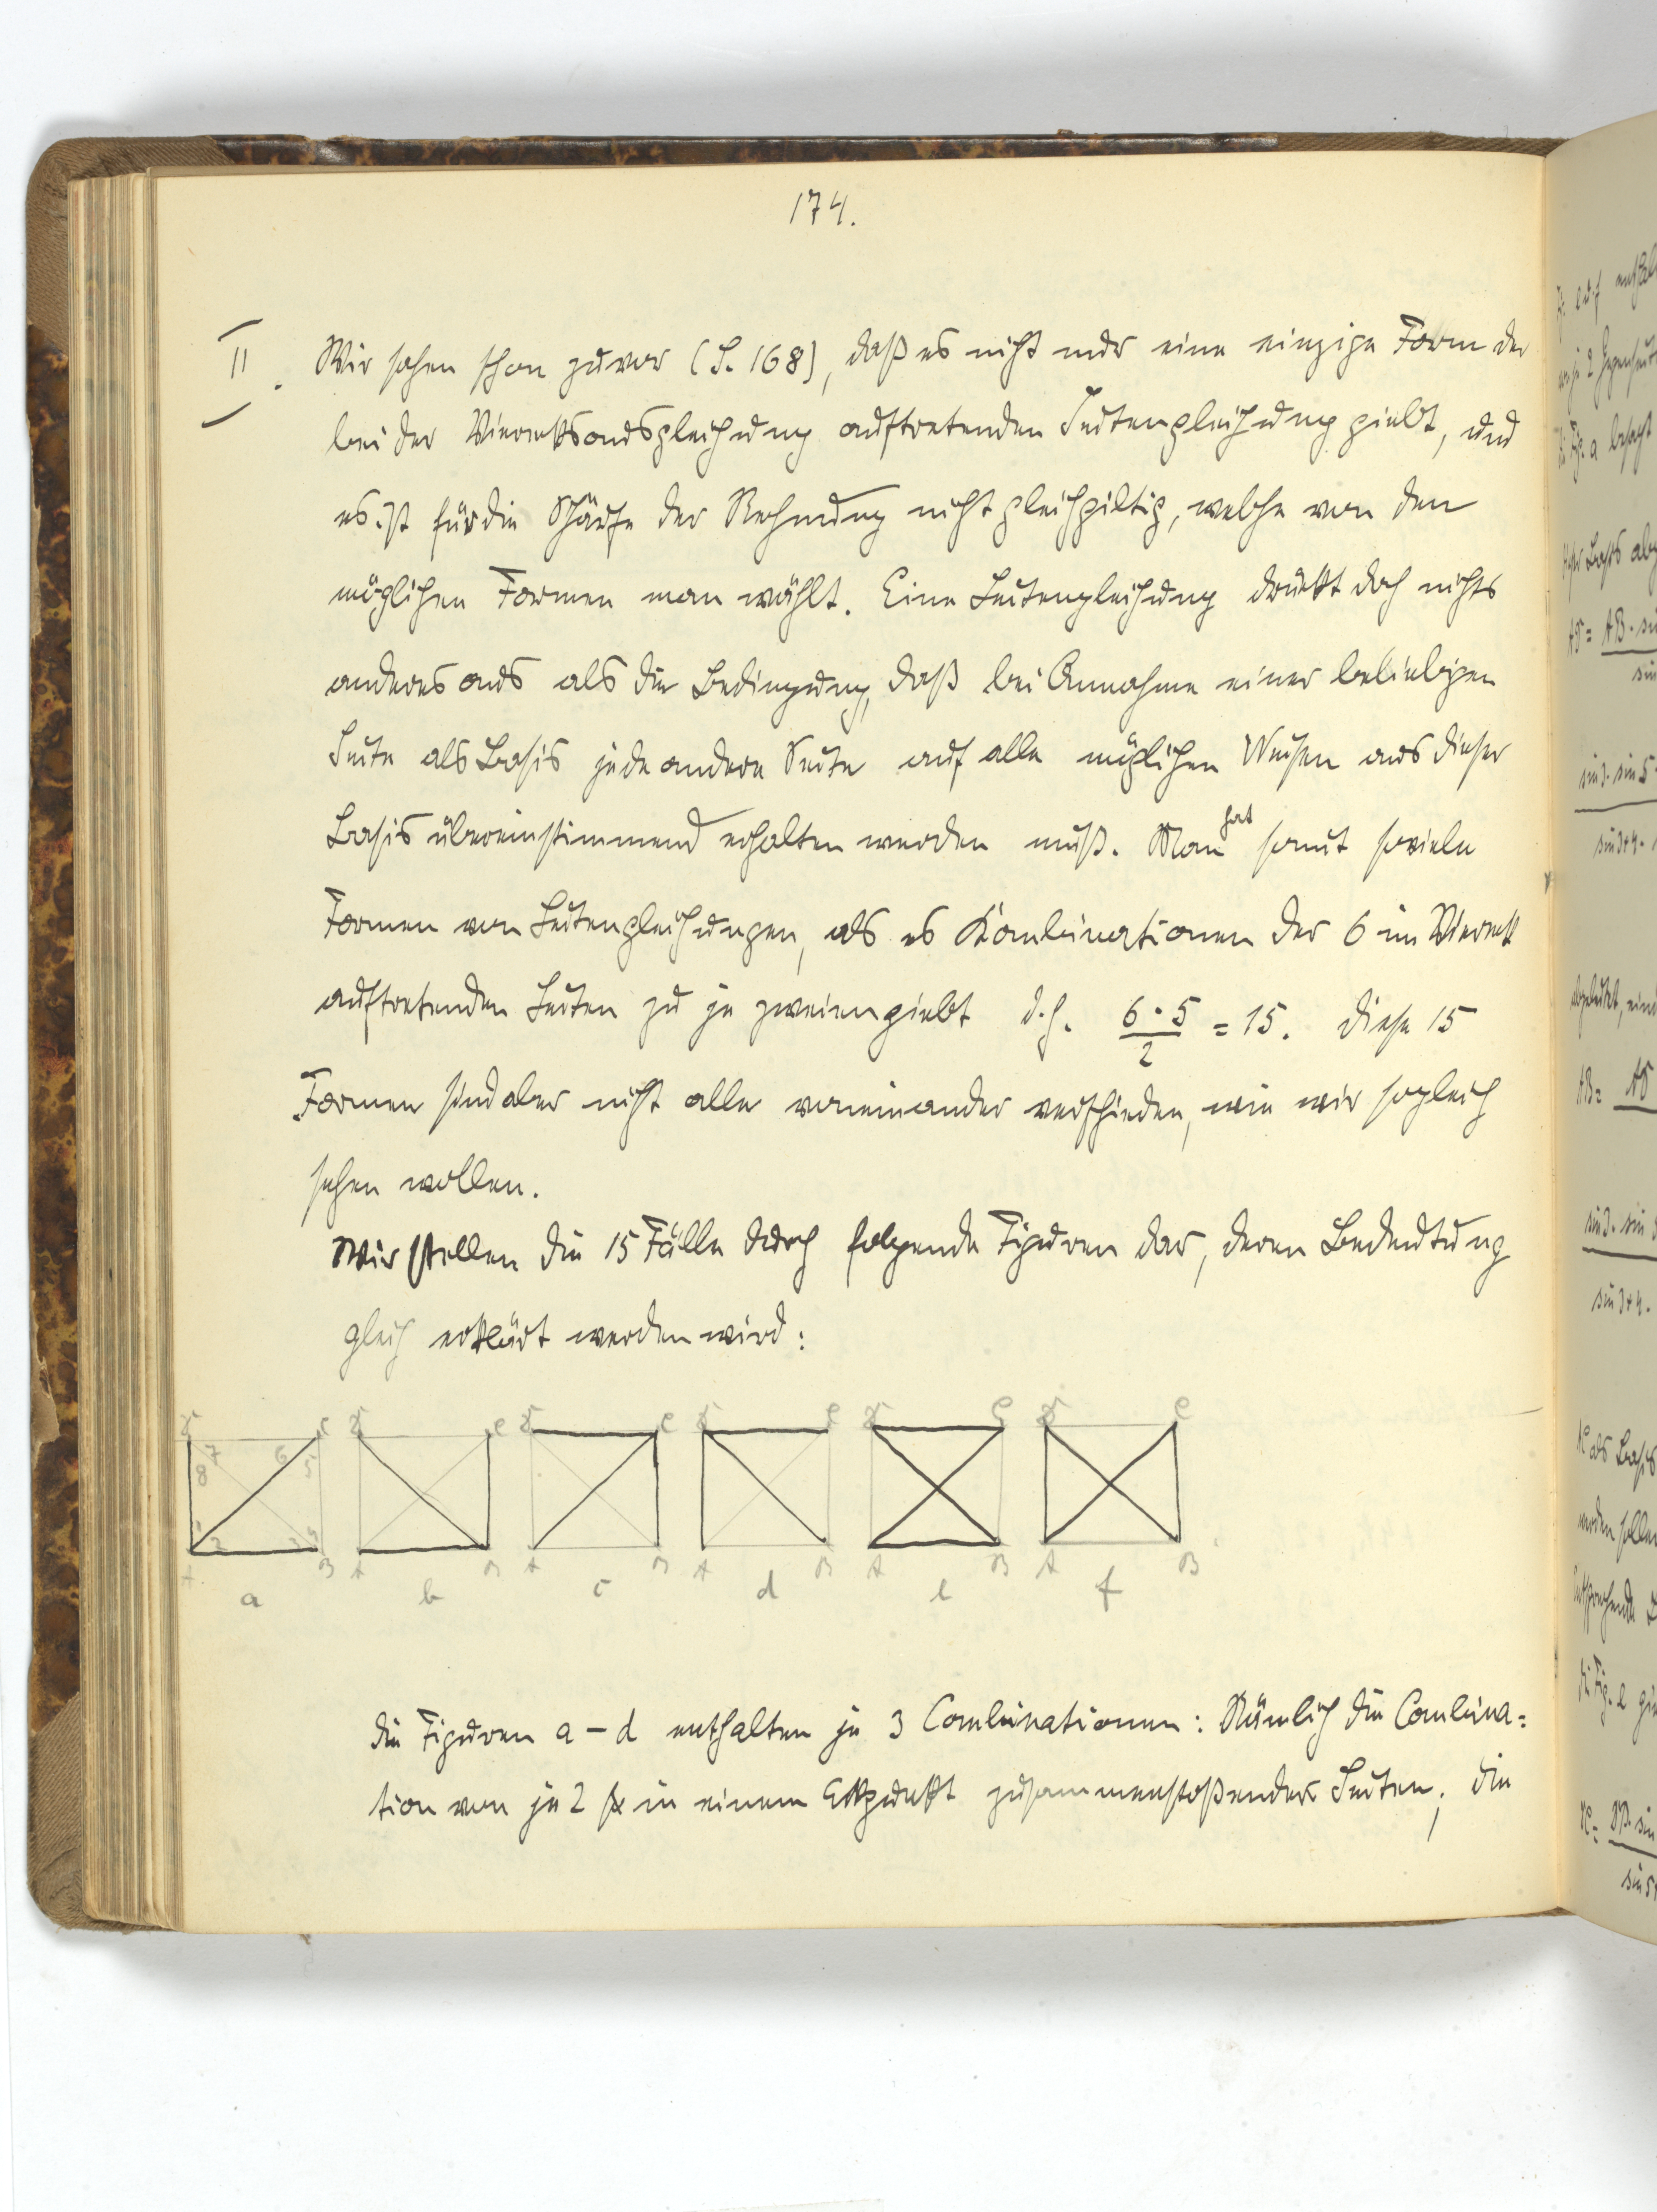 174.
II. Wir sahen schon zuvor (S. 168), daß es nicht nur eine einzige Form der
bei der Vierecksausgleichung auftretenden Seitengleichung giebt, und
es ist für die Schärfe der Rechnung nicht gleichgiltig, welche von den
möglichen Formen man wählt. Eine Seitengleichung drückt doch nichts
anderes aus als die Bedingung, daß bei Annahme einer beliebigen
Seite als Basis jede andere Seite auf alle möglichen Weisen aus dieser
Basis übereinstimmend erhalten werden muß. Man hat somit soviele
Formen von Seitengleichungen, als es Kombinationen der 6 im Viereck
auftretenden Seiten zu je zweien giebt d.h. 6·5/2 = 15. Diese 15
Formen sind aber nicht alle voneinander verschieden, wie wir sogleich
sehen wollen.
Wir stellen die 15 Fälle durch folgende Figuren dar, deren Bedeutung
gleich erklärt werden wird:
D C D C D C D C D C D C
7 6
8 5
1 4
2 3
A B A B A B A B A B A B
a b c d e f
Die Figuren a – d enthalten je 3 Combinationen: Nämlich die Combina=
tion von je 2 in einem Eckpunkt zusammenstoßender Seiten; die